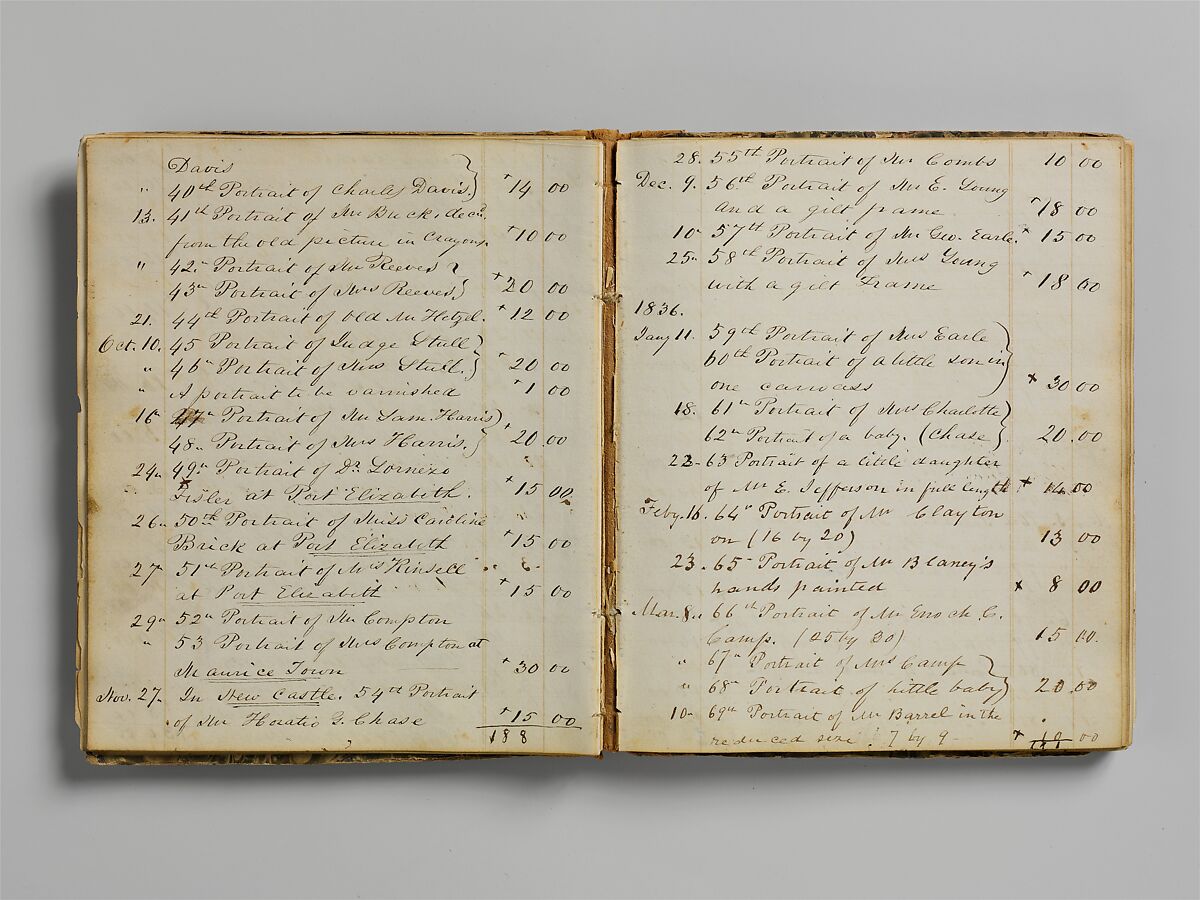 Davis
" 40th Portrait of Charles Davis.} 14 00
13. 41st Portrait of Mr Buck, decd.
from the old picture in Crayons. 10 00
" 42n Portrait of Mr Reeves
43n Portrait of Mrs Reeves} 20 00
21. 44th Portrait of old Mr Hetzel. 12 00
Oct. 10. 45 Portrait of Judge Stull
" 46n Portrait of Mrs Stull.} 20 00
" A portrait to be varnished 1 00
16 47n Portrait of Mr Sam. Harris
48n Portrait of Mrs Harris.} 20 00
24n 49n Portrait of Dr. Lornezo
Fisler at Port Elizabeth. 15 00
26n 50th Portrait of Miss Caroline
Brick at Port Elizabeth 15 00
27 51st Portrait of Mrs Kinsell
at Port Elizabeth 15 00
29n 52n Portrait of Mr Compton
" 53 Portrait of Mrs Compton at
Maurice Town 30 00
Nov. 27. In New Castle. 54th Portrait
of Mr Horatio G. Chase 15 00
188
28. 55th Portrait of Mr Combs 10 00
Dec. 9. 56th Portrait of Mr E. Young
and a gilt frame 18 00
10 57th Portrait of Mr Geo. Earle. 15 00
25n 58th Portrait of Mrs Young
with a gilt Frame 18 00
1836.
Jany 11. 59th Portrait of Mrs Earle
60th Portrait of a little son in
one canvass} 30 00
18. 61n Portrait of Mrs Charlotte
62n Portrait of a baby. (Chase} 20.00
22 63 Portrait of a little daughter
of Mr E. Jefferson in full length 00
Feby. 16. 64n Portrait of Mr Clayton
on (16 by 20) 13 00
23. 65 Portrait of Mr Blaney's
hands painted 8 00
Mar. 8. 66th Portrait of Mr Enoch C.
Camp. (25 by 30) 15 00.
" 67n Portrait of Mrs Camp
" 68n Portrait of little baby} 20.00
10 69th Portrait of Mr Barrel in the
reduced size! 7 by 9 10 00